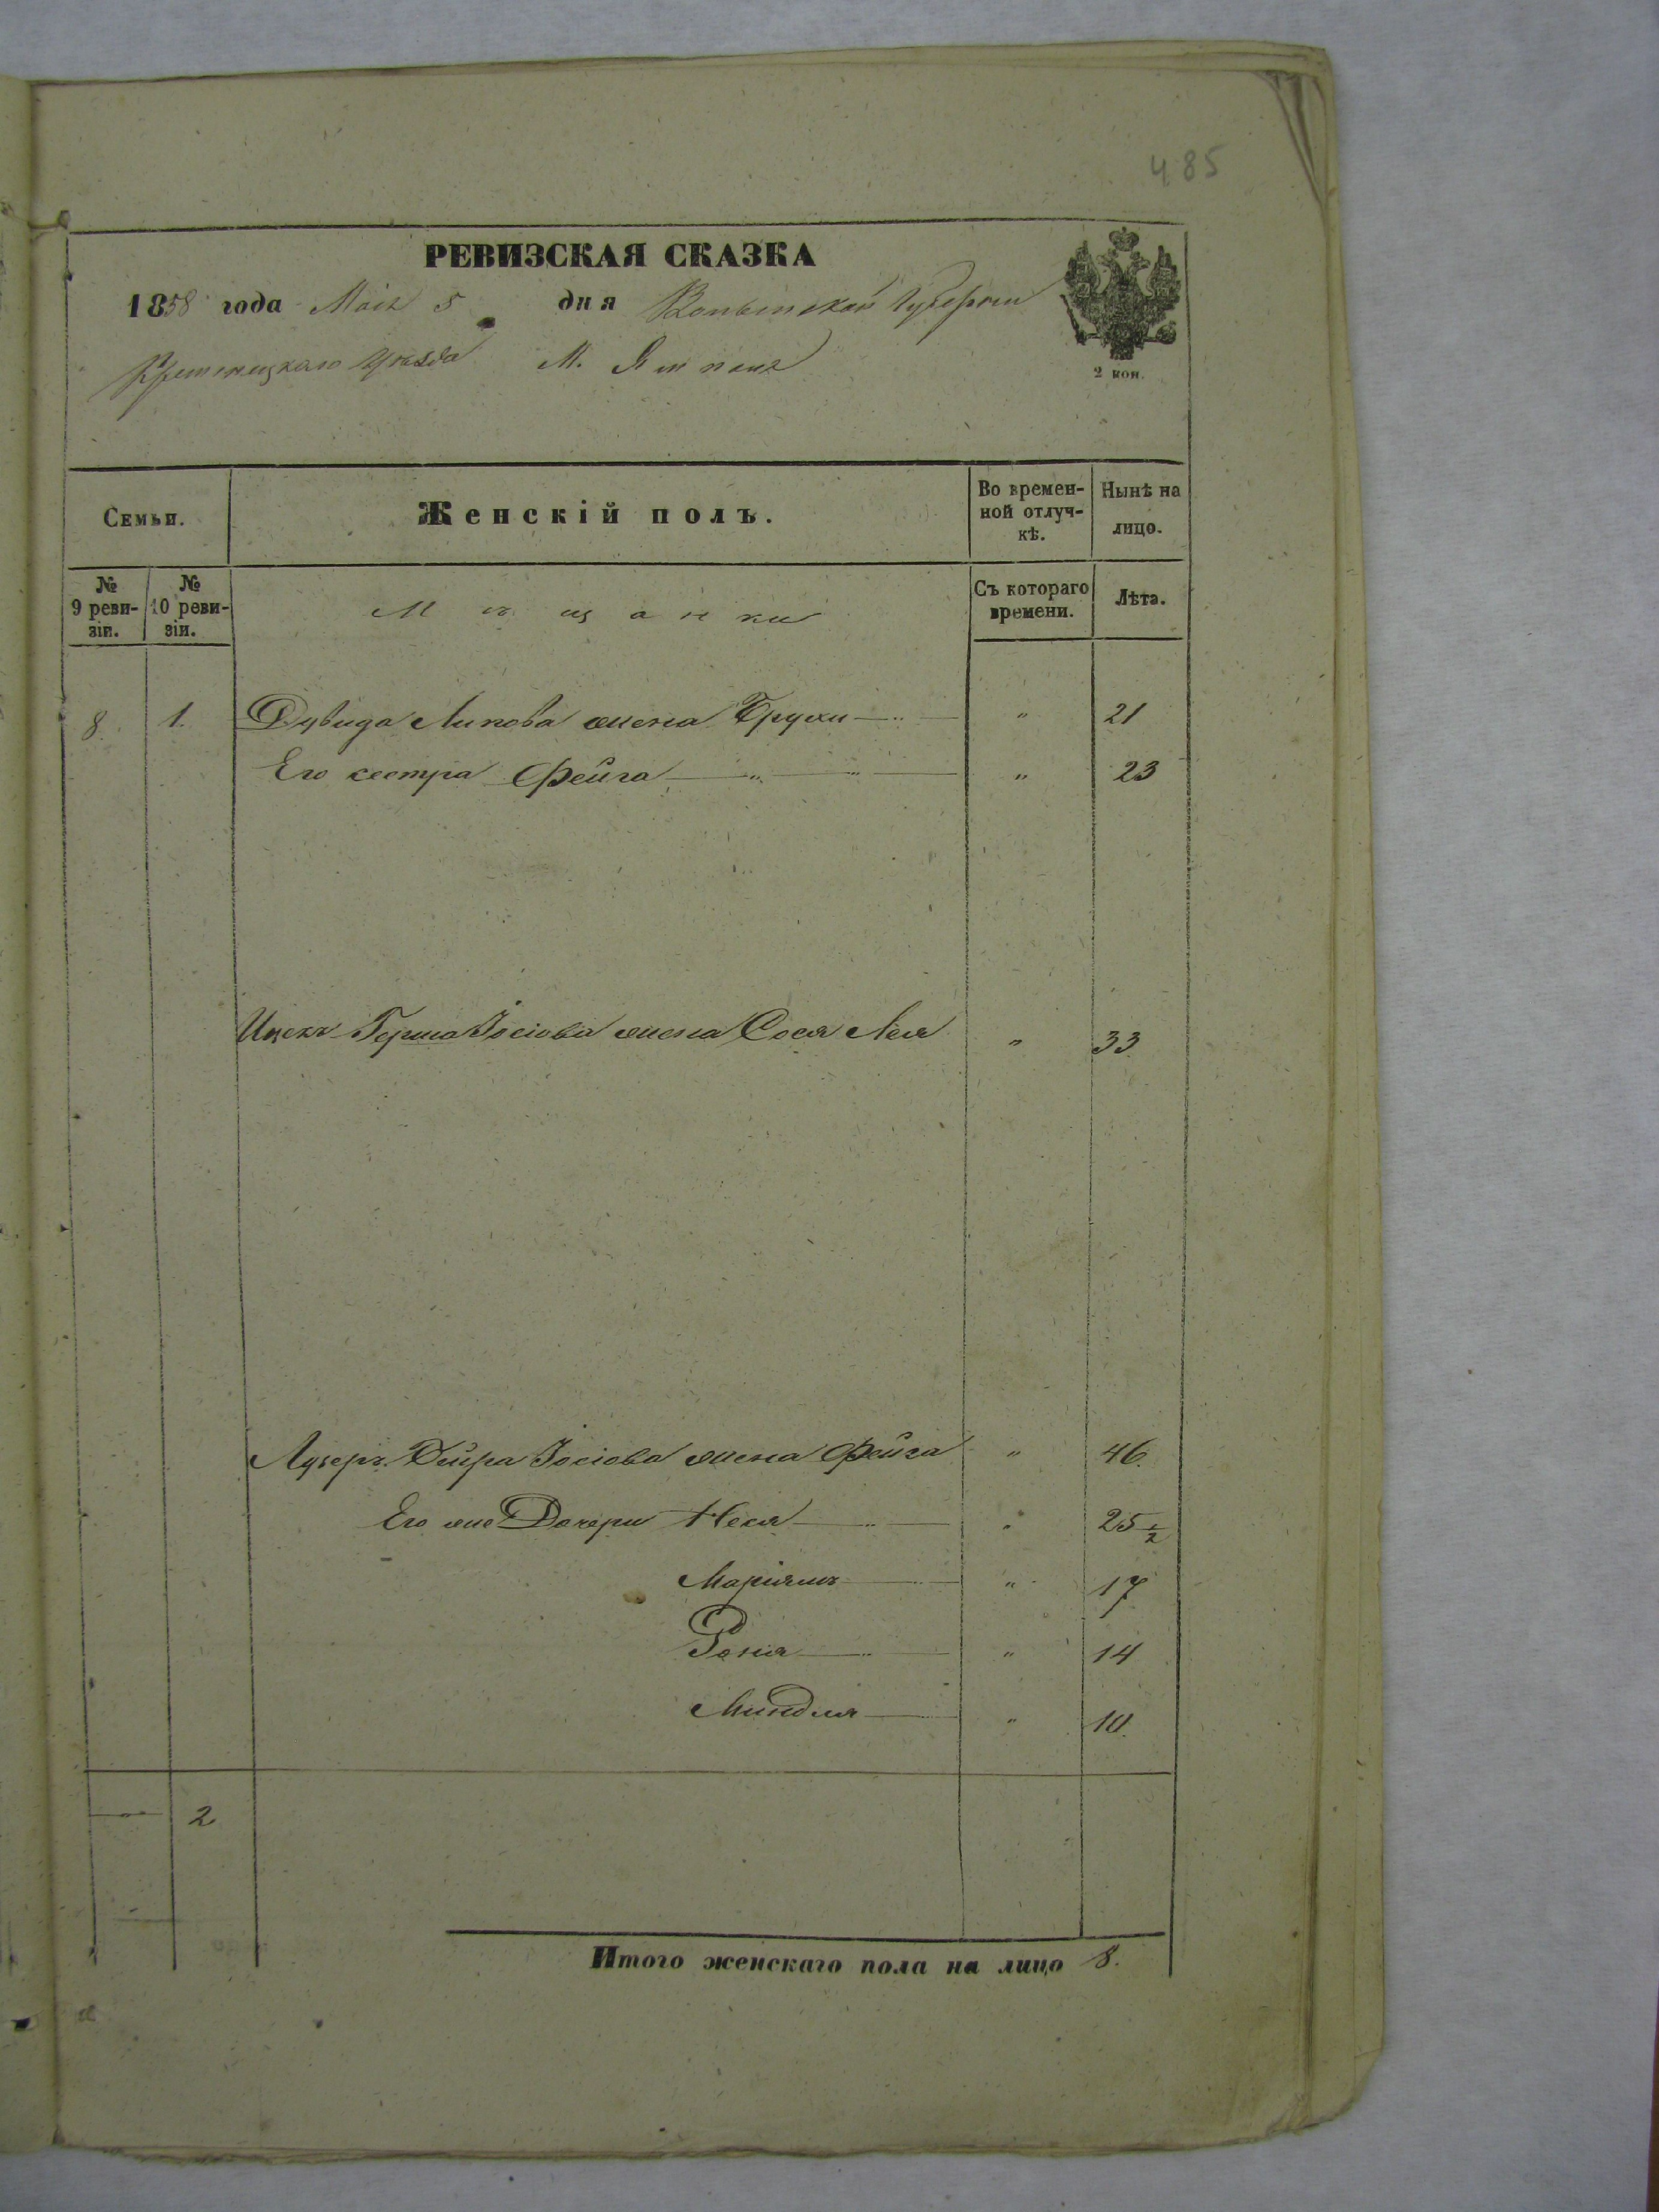 485
РЕВИЗСКАЯ СКАЗКА
1858 года Маія 5 дня Волынской Губерніи
Кременецкаго Уѣзда М. Ямполь
2 коп.
Семьи. Женскій полъ. Во времен-ной отлуч-кѣ. Нынѣ на лицо.
№ 9 реви-зіи. № 10 реви-зіи. Мѣщанки Съ котораго времени. Лѣта.
8. 1. Дувида Липова жена Брухи " 21
Его сестра Фейга " 23
Ицекъ Герша Іосіова жена Сося Лея " 33
Лузеръ Іосіова жена Фейга " 46.
Его же Дочери Неся " 25 1/2
Маріямъ " 17
Рейзя " 14
Миндля " 10.
2
Итого женскаго пола на лицо 8.